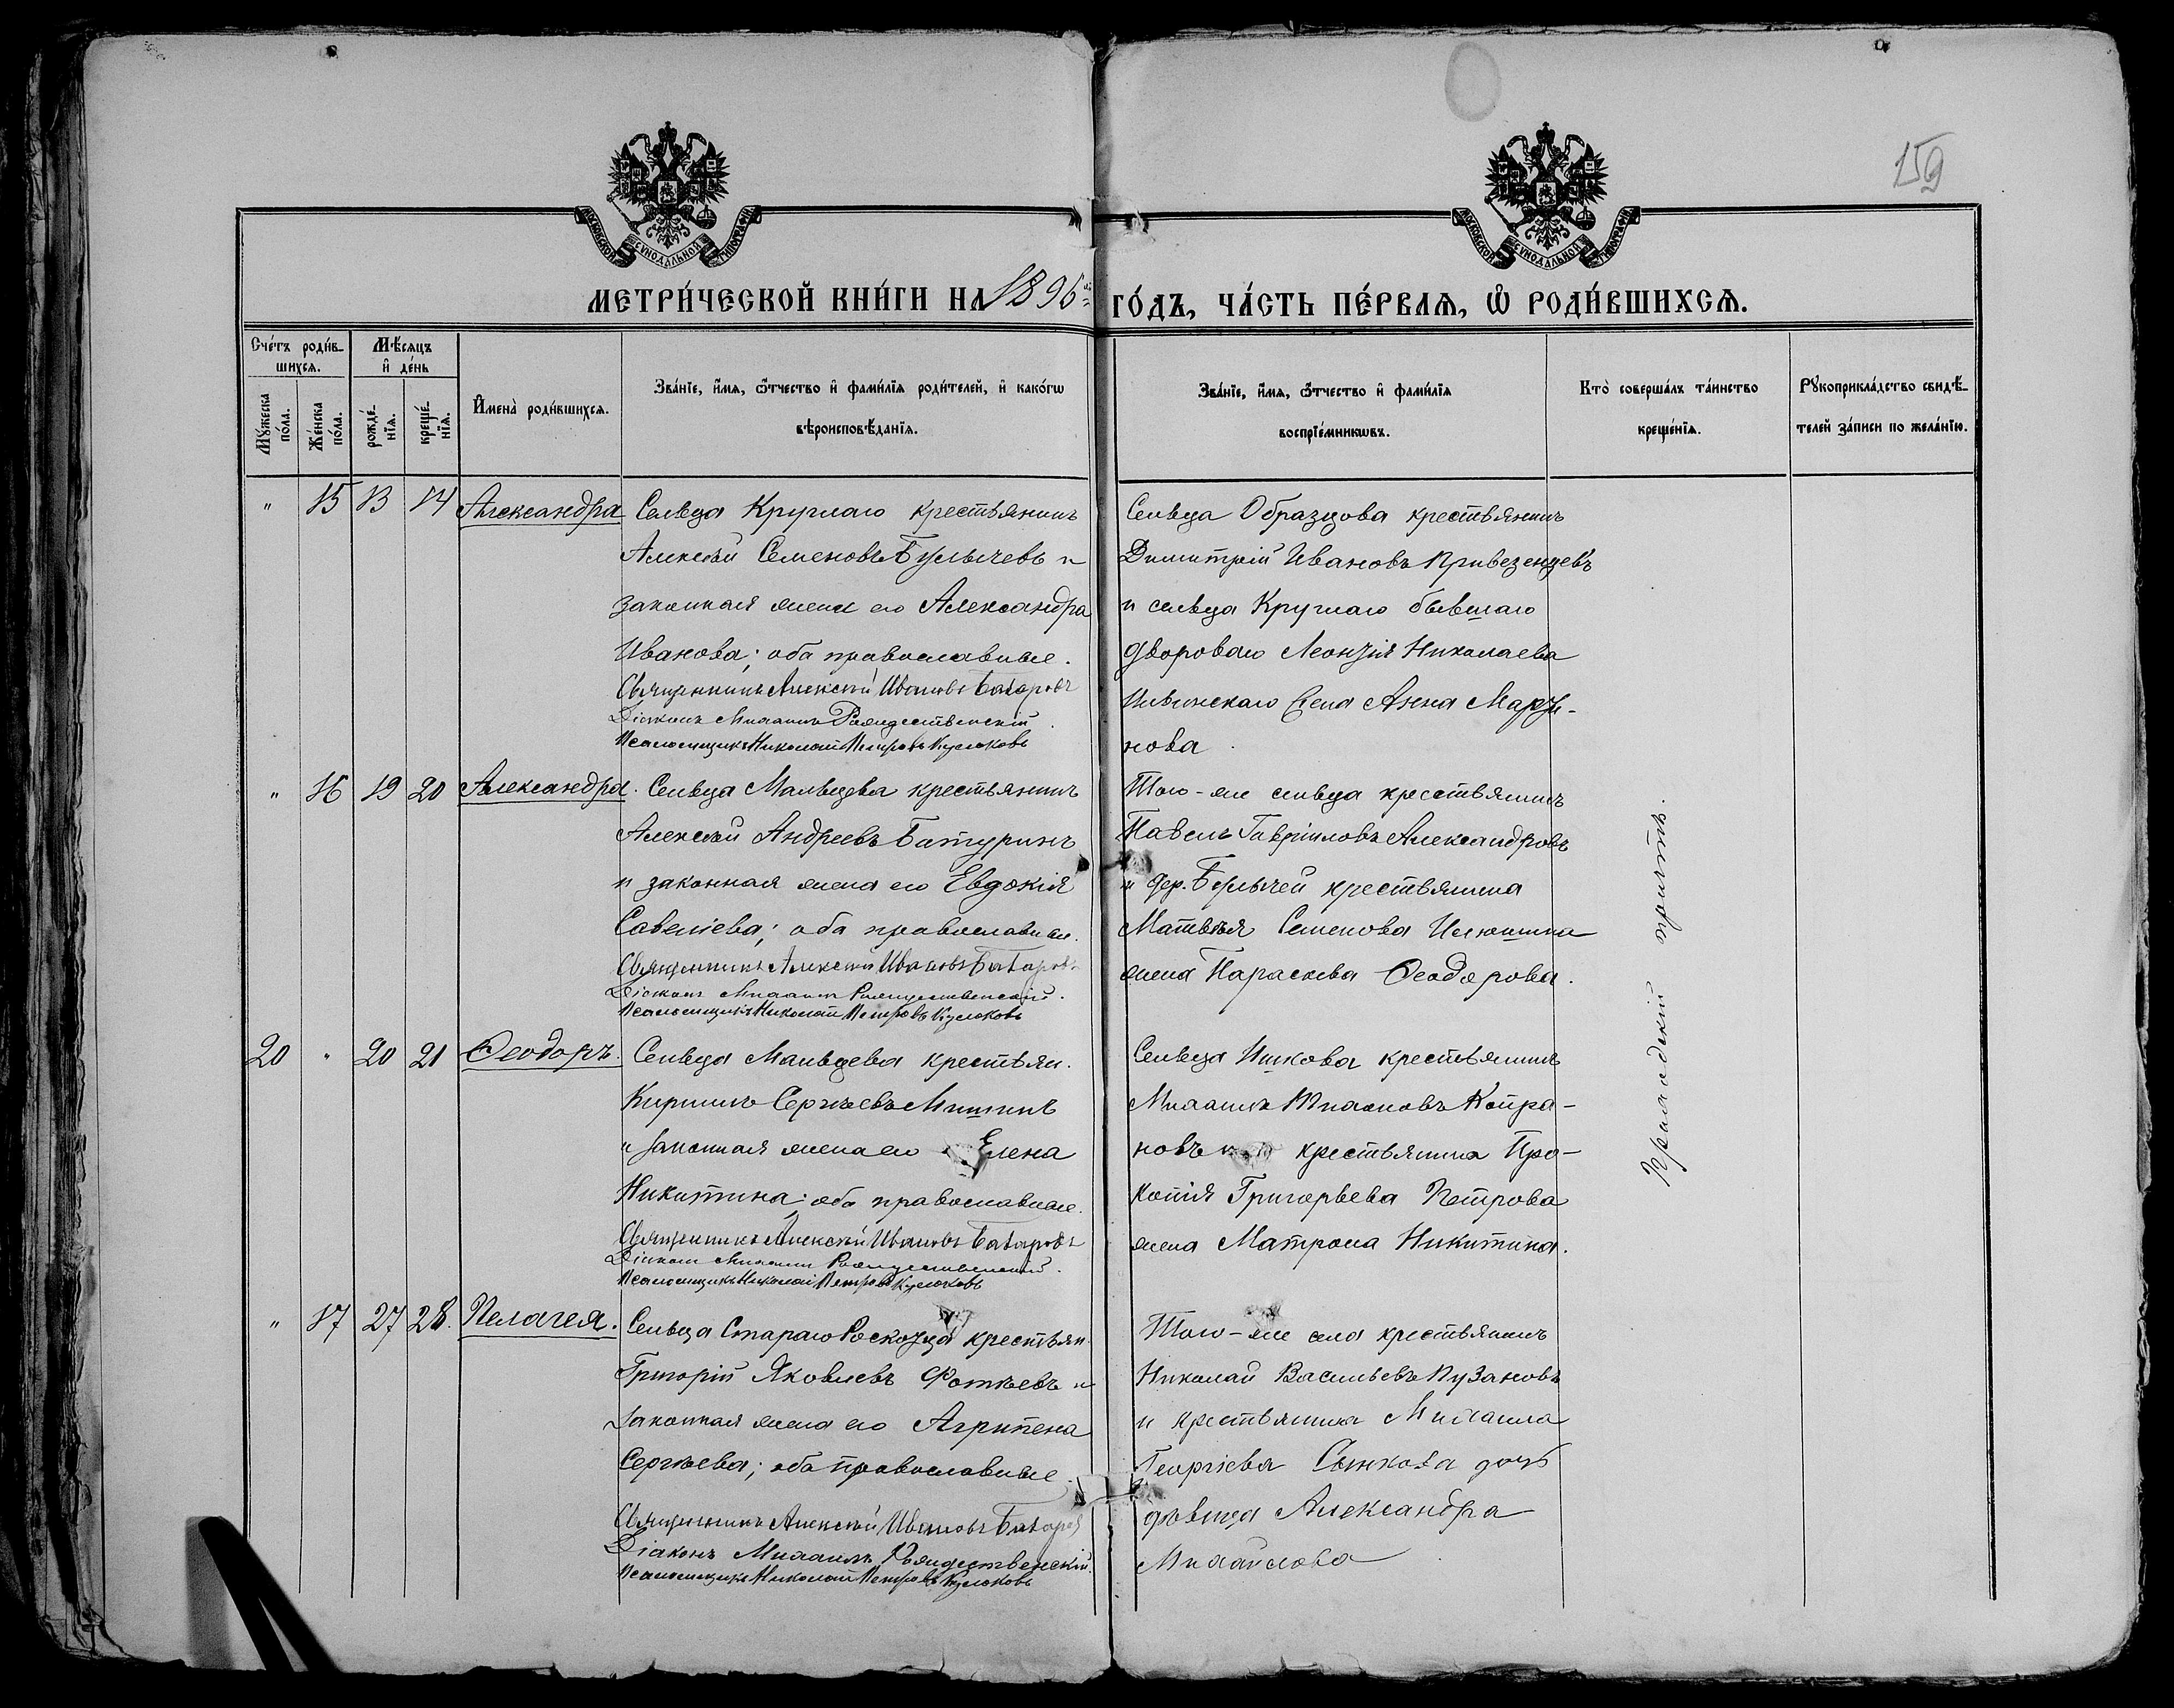 159
МЕТРИ́ЧЕСКОЙ КНИ́ГИ НА 1896 й ГО́ДЪ, ЧА́СТЬ ПЕ́РВАЯ, Ѿ РОДИ́ВШИХСЯ.
Сче́тъ роди́в-
шихся.
Мѣ́сяцъ
и҆ де́нь
Мꙋ́жеска по́ла.
Же́нска по́ла.
рожде́-
нїя.
креще́-
нїя.
И҆мена̀ роди́вшихся.
Зва́нїе, и҆́мя, ѻ҆́тчество и҆ фами́лїя роди́телей, и҆ како́гѡ
вѣроисповѣ́данїя.
Зва́нїе, и҆́мя, ѻ҆́тчество и҆ фами́лїя
воспрїе́мникѡвъ.
Кто̀ соверша́лъ та́инство
креще́нїя.
Рꙋкоприкла́дство свидѣ́-
телей за́писи по жела́нїю.
" 15 13 14 Александра
Сельца Круглаго крестьянинъ
Алексѣй Семеновъ Булычевъ и
законная жена его Александра
Иванова; оба православные.
Священникъ Алексѣй Ивановъ Бахаровъ
Діаконъ Михаилъ Рождественскій.
Псаломщикъ Николай Петровъ Кулюковъ
Сельца Образцова крестьянинъ
Димитрій Ивановъ Привезенцевъ
и сельца Круглаго бывшаго
двороваго Леонтія Николаева
Ильинскаго жена Анна Марти-
нова.
" 16 19 20 Александра.
Сельца Мальцева крестьянинъ
Алексѣй Андреевъ Батуринъ
и законная жена его Евдокія
Савеліева; оба православные.
Священникъ Алексѣй Ивановъ Бахаровъ
Діаконъ Михаилъ Рождественскій.
Псаломщикъ Николай Петровъ Кулюковъ
Того-же сельца крестьянинъ
Павелъ Гавріиловъ Александровъ
и дер. крестьянина
Матвѣя Семенова Илюшина
жена Параскева Ѳеодорова.
20 " 20 21 Ѳеодоръ.
Сельца Мальцева крестьян.
Кириллъ Сергѣевъ Мишинъ
и законная жена его Елена
Никитина; оба православные.
Священникъ Алексѣй Ивановъ Бахаровъ
Діаконъ Михаилъ Рождественскій.
Псаломщикъ Николай Петровъ Кулюковъ
Сельца Ишкова крестьянинъ
Михаилъ Тихоновъ Копра-
новъ и крестьянина Про-
копія Григорьева Петрова
жена Матрона Никитина.
" 17 27 28. Пелагея.
Сельца Стараго Роскотца крестьян.
Григорій Яковлевъ Фотѣевъ и
законная жена его Агрипена
Сергѣева; оба православные.
Священникъ Алексѣй Ивановъ Бахаровъ
Діаконъ Михаилъ Рождественскій.
Псаломщикъ Николай Петровъ Кулюковъ
Того-же села крестьянинъ
Николай Васильевъ Пузановъ
и крестьянина Михаила
Георгіева Сынкова дочь
дѣвица Александра
Михайлова
Приходскій причтъ.